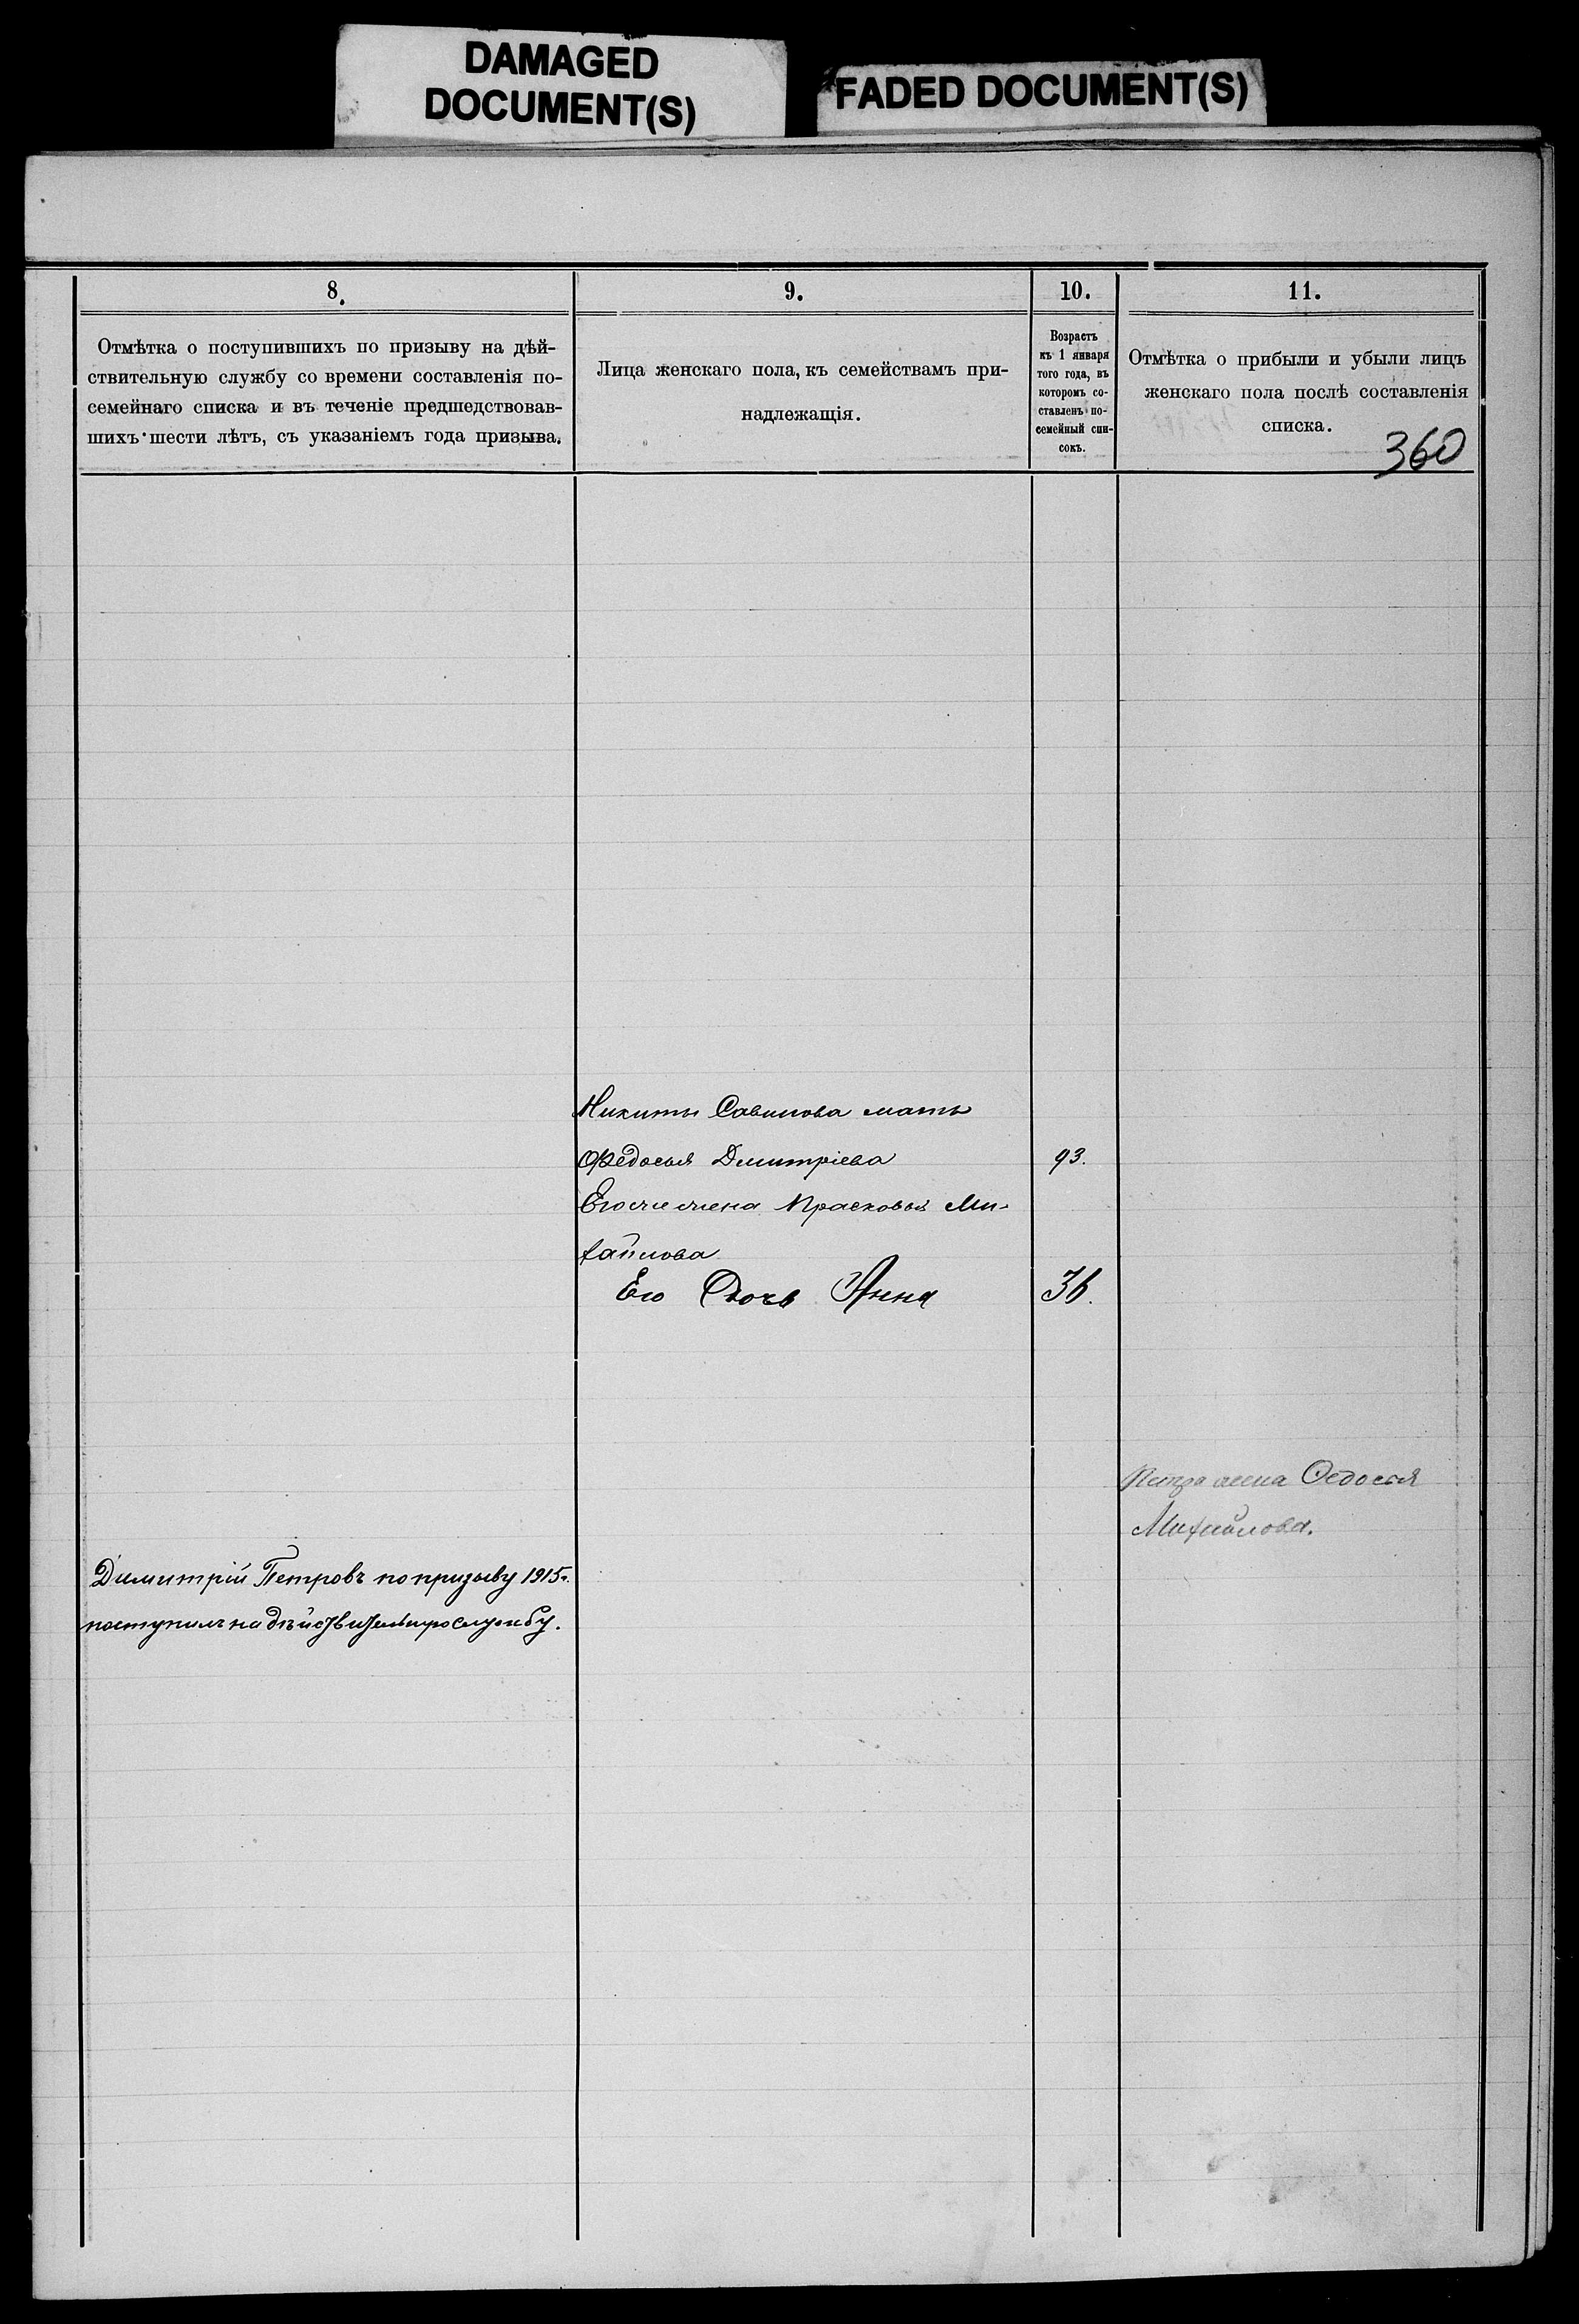 DAMAGED
DOCUMENT(S)
FADED DOCUMENT(S)
8.
Отмѣтка о поступившихъ по призыву на дѣй-
ствительную службу со времени составленія по-
семейнаго списка и въ теченіе предшедствовав-
шихъ шести лѣтъ, съ указаніемъ года призыва.
9.
Лица женскаго пола, къ семействамъ при-
надлежащія.
10.
Возрастъ
къ 1 января
того года, въ
которомъ со-
ставленъ по-
семейный спи-
сокъ.
11.
Отмѣтка о прибыли и убыли лицъ
женскаго пола послѣ составленія
списка.
360
Никиты Савинова мать
Федосья Дмитріева 93.
Его же жена Прасковья Ми-
хайлова
Его Дочь Анна 36.
Петра жена Федосья
Михайлова.
Димитрій Петровъ по призыву 1915г.
поступилъ на дѣйствительную службу.